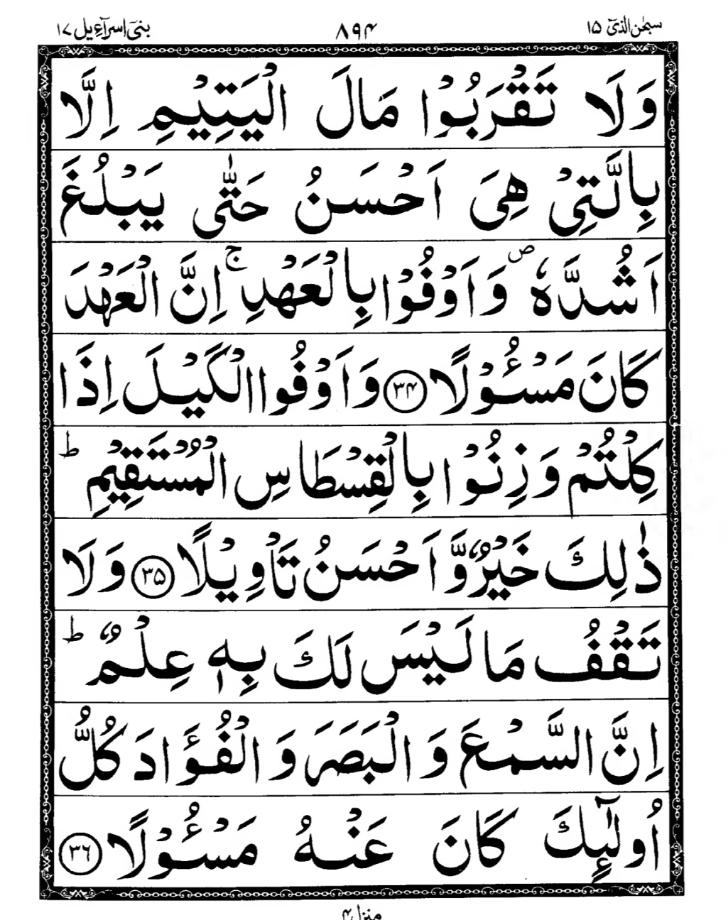 سبحٰن الذیٓ ۱۵ ۸۹۴ بنیٓ اسرآءیل ۱۷
وَلَا تَقْرَبُوْا مَالَ الْيَتِيْمِ اِلَّا
بِالَّتِيْ هِيَ اَحْسَنُ حَتّٰى يَبْلُغَ
اَشُدَّهٗ ۪ وَاَوْفُوْا بِالْعَهْدِ ۚ اِنَّ الْعَهْدَ
كَانَ مَسْـُٔوْلًا ۳۴ وَاَوْفُوا الْكَيْلَ اِذَا
كِلْتُمْ وَزِنُوْا بِالْقِسْطَاسِ الْمُسْتَقِيْمِ ؕ
ذٰلِكَ خَيْرٌ وَّاَحْسَنُ تَاْوِيْلًا ۳۵ وَلَا
تَقْفُ مَا لَيْسَ لَكَ بِهٖ عِلْمٌ ؕ
اِنَّ السَّمْعَ وَالْبَصَرَ وَالْفُؤَادَ كُلُّ
اُولٰٓئِكَ كَانَ عَنْهُ مَسْـُٔوْلًا ۳۶
منزل ۴